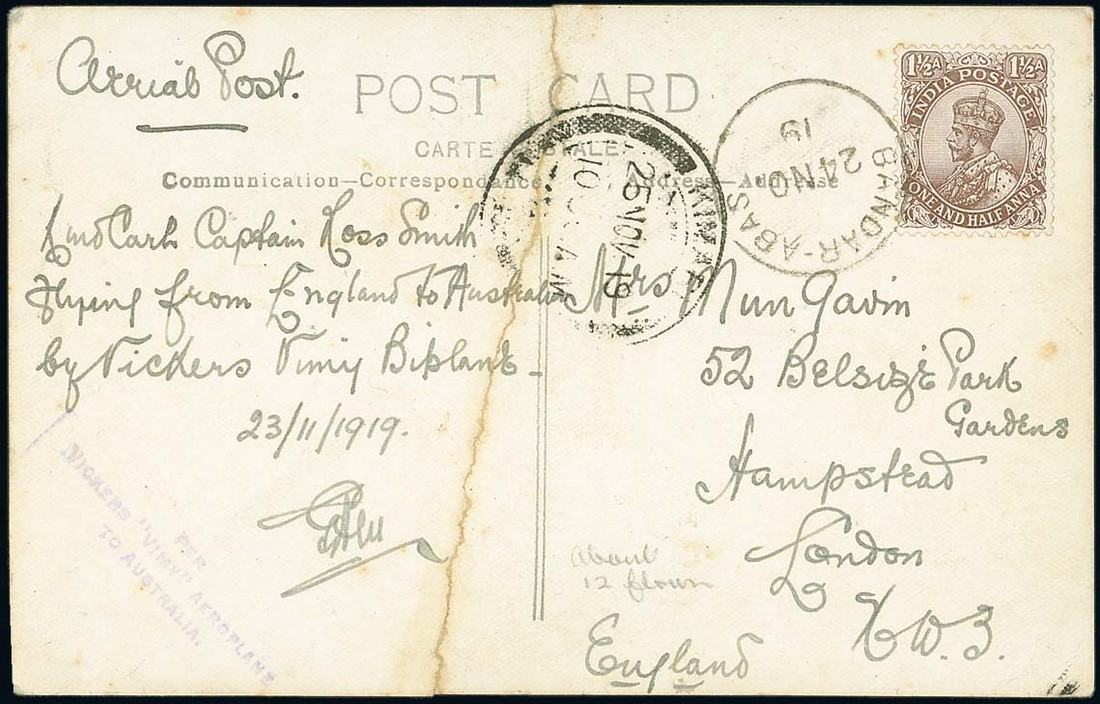 Arrial Post.
POST CARD
CARTE POSTALE
Communication—Correspondance
Address—Addresse
Captain Ross Smith
Flying from England to Australia
by Vickers Vimy Biplane
23/11/1919.
PER
VICKERS "VIMY" AEROPLANE
TO AUSTRALIA.
25 NOV 19
10 AM
BANDAR-ABAS
24 NO
19
1½A 1½A
INDIA POSTAGE
ONE AND HALF ANNA
Mrs Mun Gavin
52 Belsize Park
Gardens
Hampstead
London
N.W.3.
England
About
12 flown